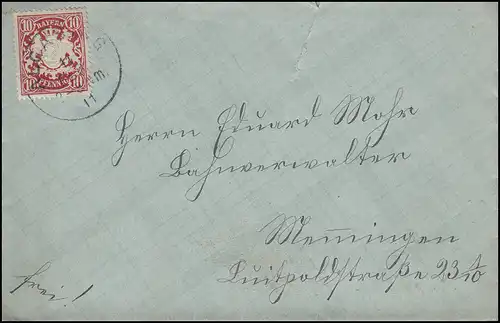 10 BAYERN 10
10 PFENNIG 10
11
Herrn Eduard Mohr
Bahnverwalter
Memmingen
Luitpoldstraße 23 1/0
frei!